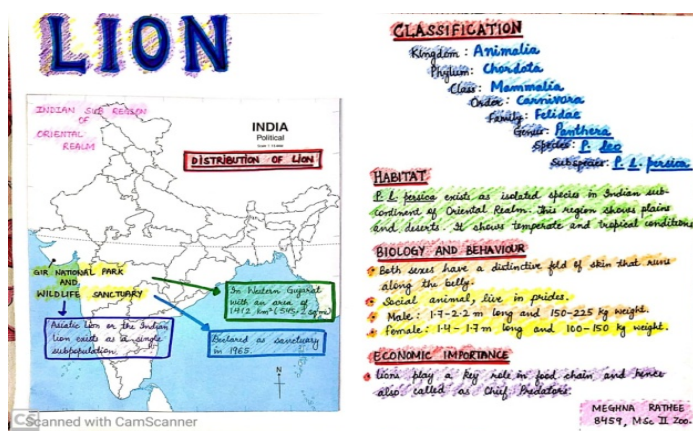 LION
INDIAN SUB REGION
OF
ORIENTAL
REALM
INDIA
Political
DISTRIBUTION OF LION
GIR NATIONAL PARK
AND
WILDLIFE SANCTUARY
In Western Gujarat
with an area of
1412 km² (545.2 sq mi)
Asiatic Lion or the Indian
Lion exists as a single
subpopulation.
Declared as sanctuary
in 1965.
N
CS Scanned with CamScanner
CLASSIFICATION
Kingdom : Animalia
Phylum : Chordata
Class : Mammalia
Order : Carnivora
Family : Felidae
Genus : Panthera
Species : P. leo
Subspecies : P. l. persica
HABITAT
P. l. persica exists as isolated species in Indian sub-
continent of Oriental Realm. This region shows plains
and deserts. It shows temperate and tropical conditions
BIOLOGY AND BEHAVIOUR
Both sexes have a distinctive fold of skin that runs
along the belly.
Social animal, live in prides.
Male : 1.7-2.2 m long and 150-225 kg weight.
Female : 1.4 - 1.7 m long and 100-150 kg weight.
ECONOMIC IMPORTANCE
Lions play a key role in food chain and hence
also called as Chief Predators.
MEGHNA RATHEE
8459, MSc II Zoo.